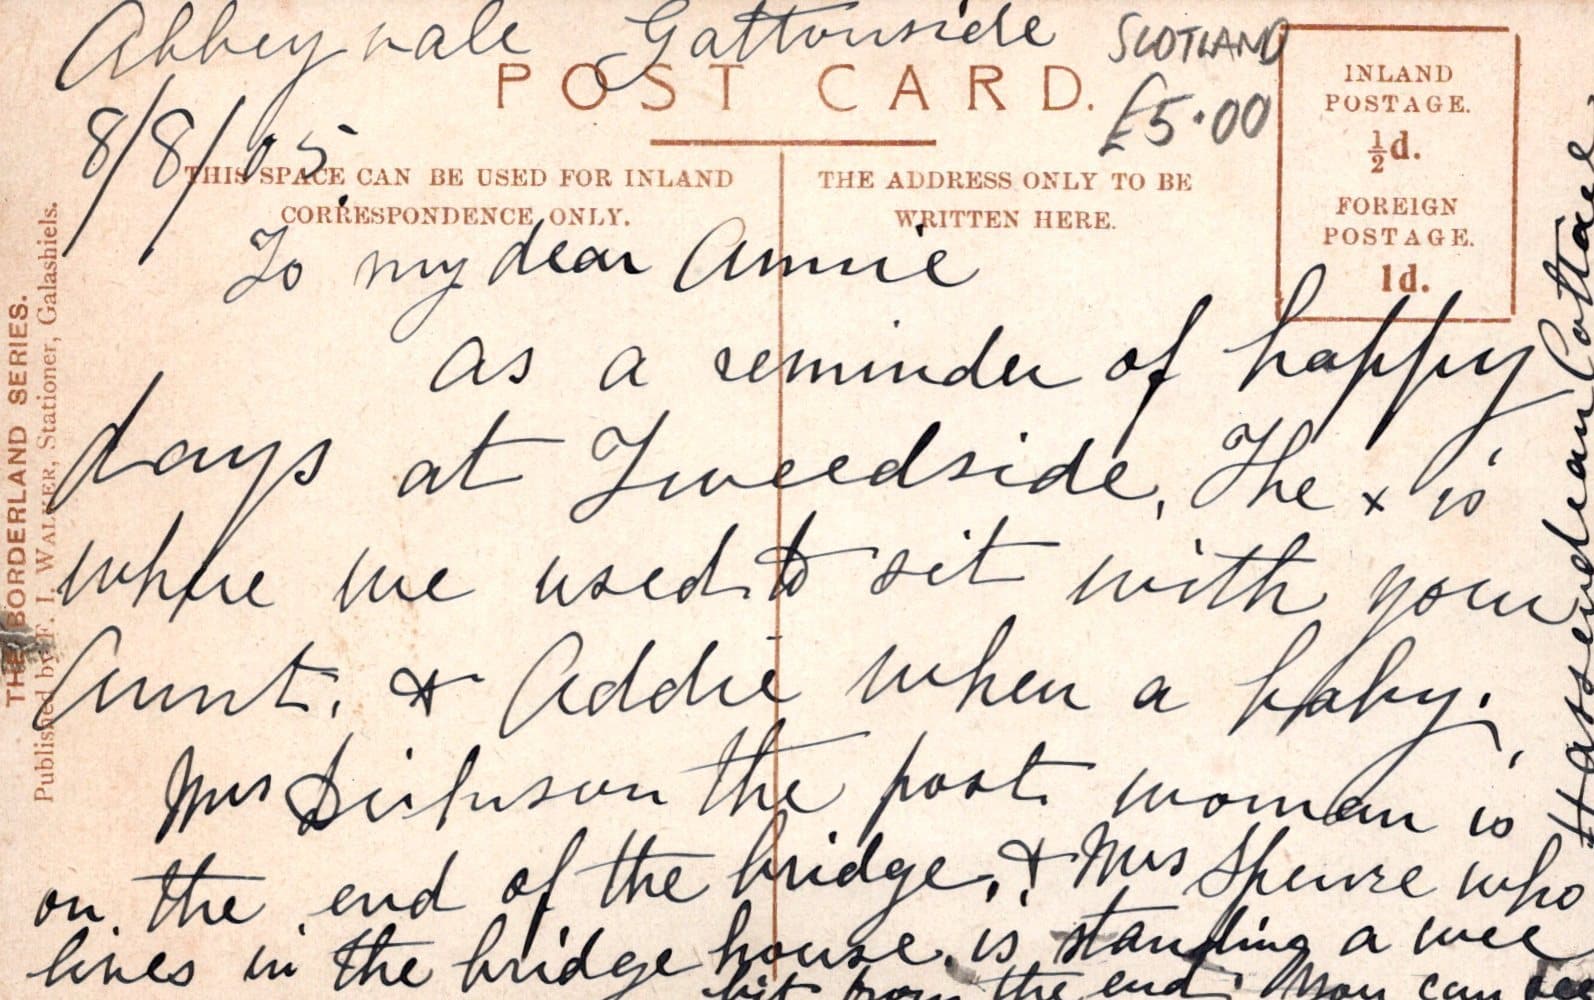 Abbey vale Gattonside
SCOTLAND
£5.00
POST CARD.
8/8/05
THIS SPACE CAN BE USED FOR INLAND
CORRESPONDENCE ONLY.
THE ADDRESS ONLY TO BE
WRITTEN HERE.
INLAND
POSTAGE.
½d.
FOREIGN
POSTAGE.
1d.
To my dear Annie
as a reminder of happy
days at Tweedside, The x is
where we used to sit with your
Aunt, & Addie when a baby.
Mrs the post woman is
on the end of the bridge, & Mrs Spence who
lives in the bridge house, is standing a wee
bit from the end. You can see
Hassendean Cottage
THE BORDERLAND SERIES.
Published by F. I. WALKER, Stationer, Galashiels.